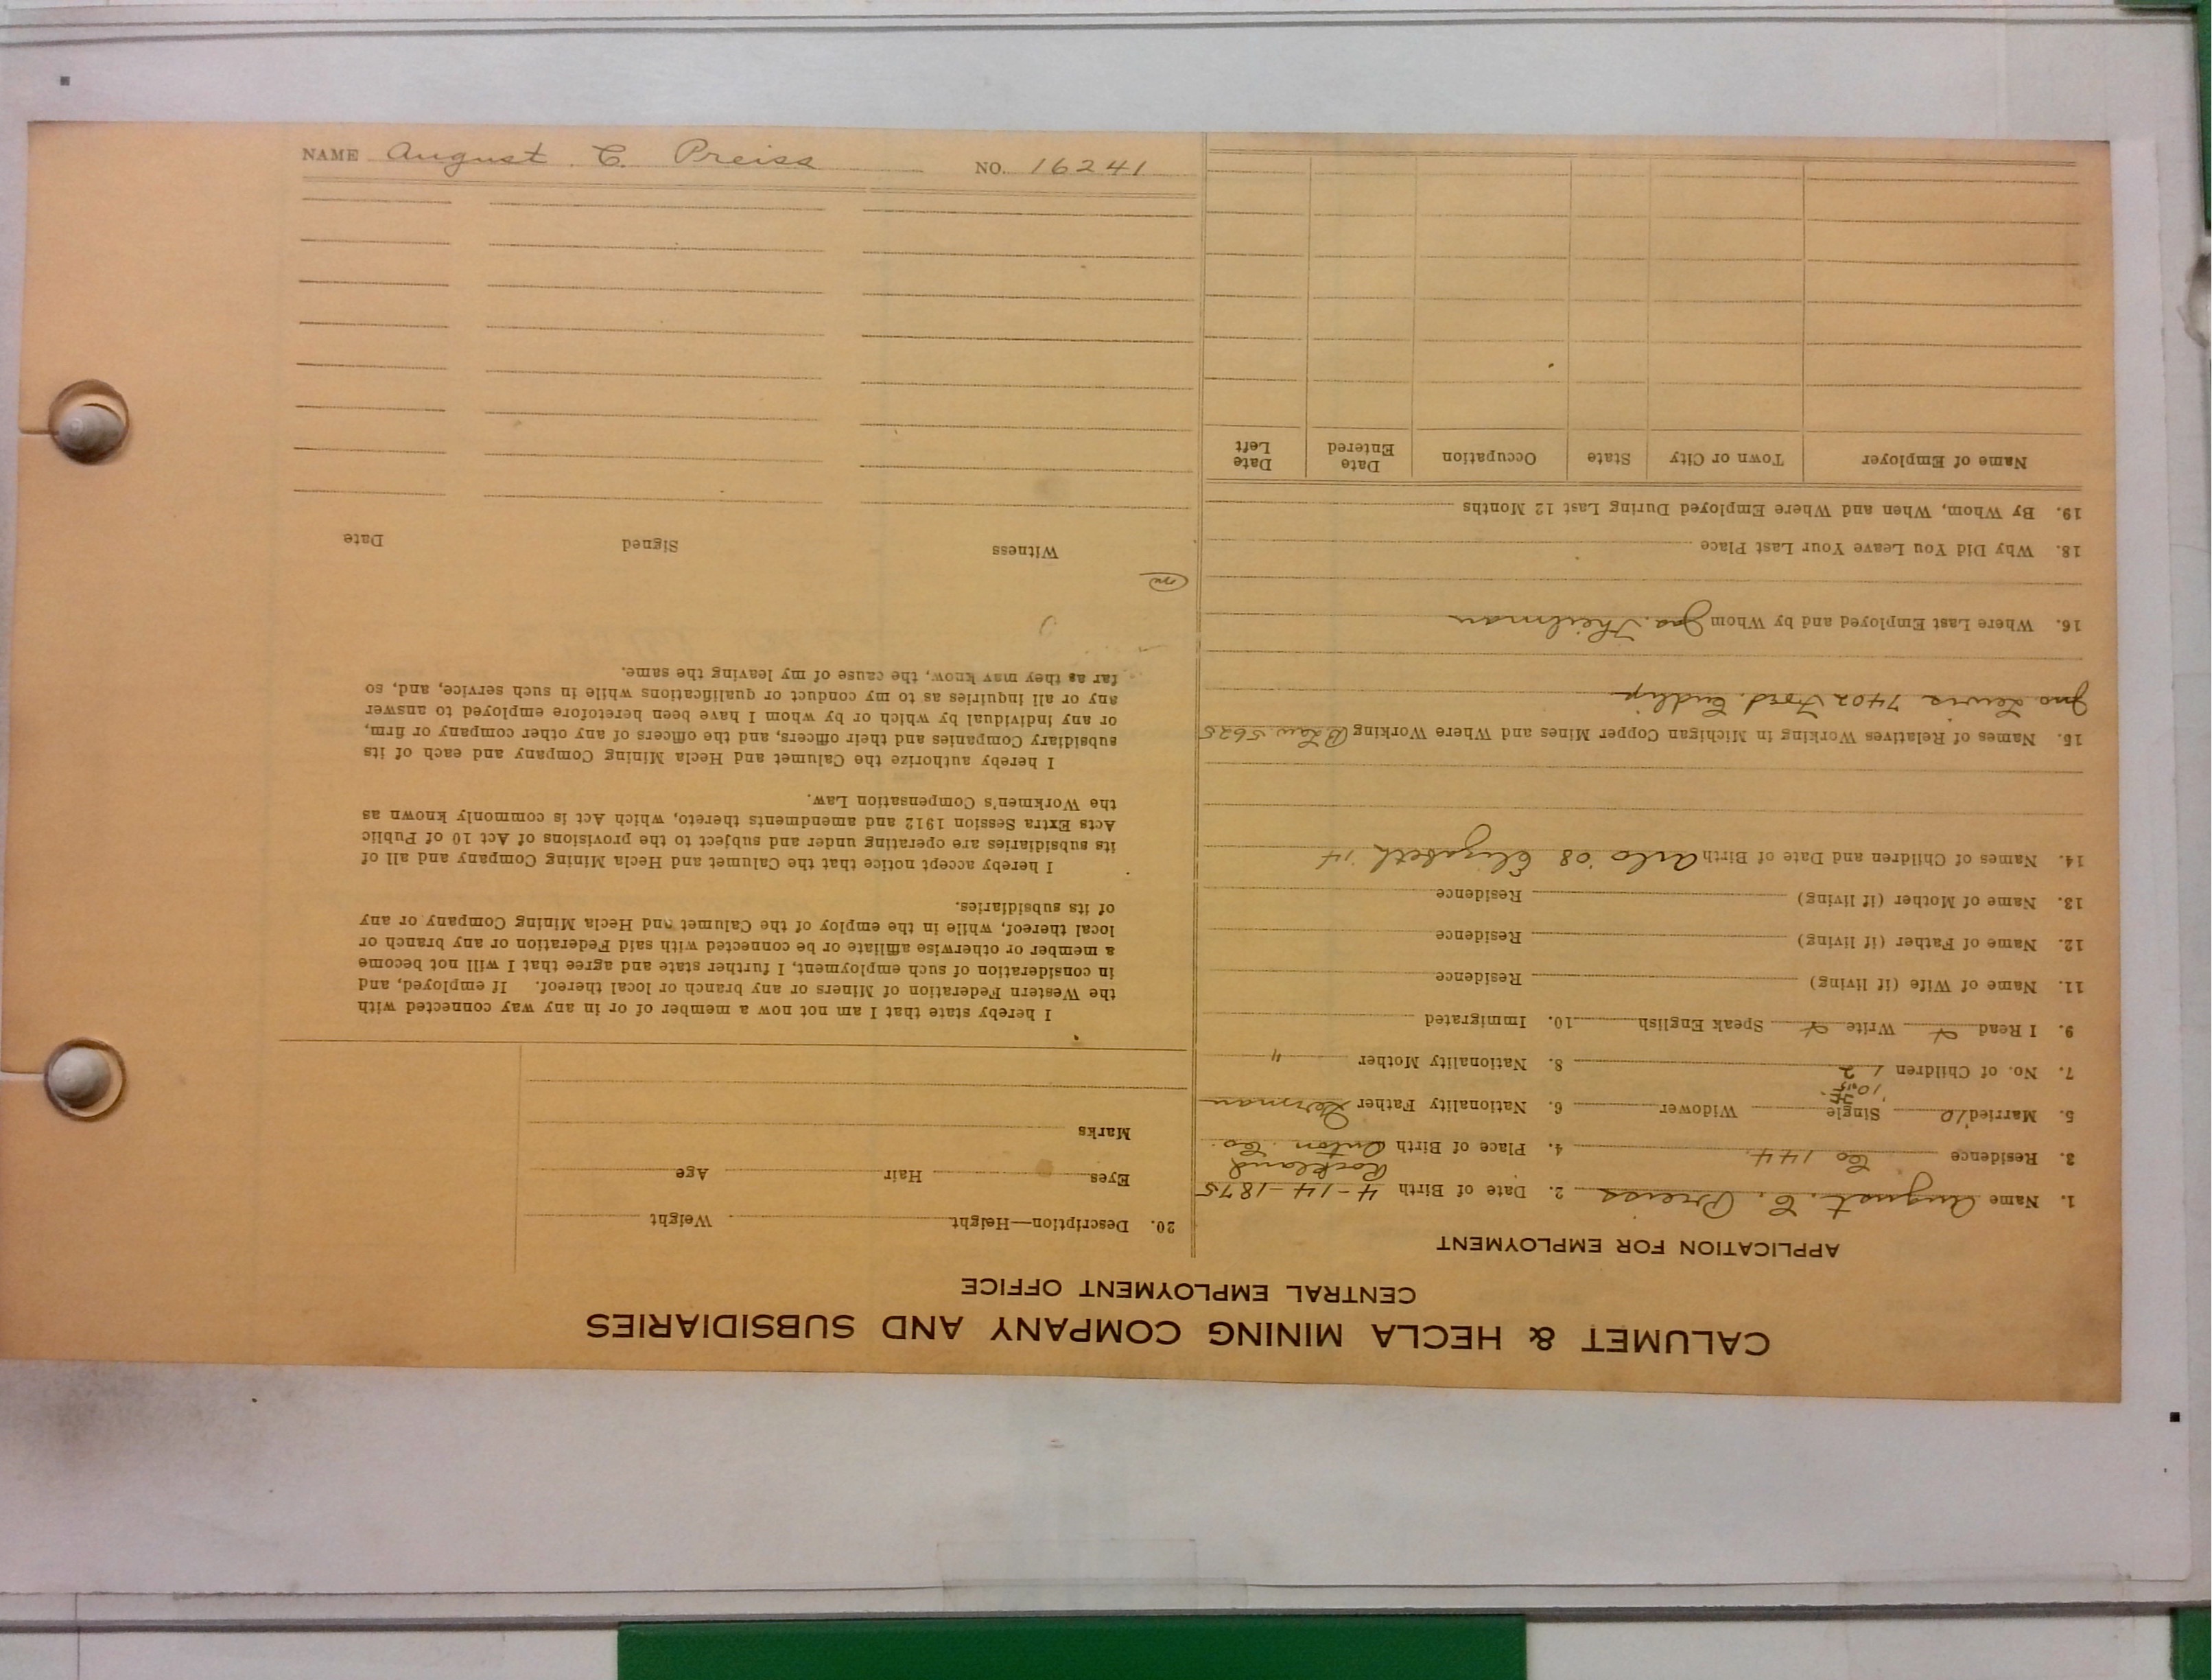 NAME August C. Preiss NO. 16241
CALUMET & HECLA MINING COMPANY AND SUBSIDIARIES
CENTRAL EMPLOYMENT OFFICE
APPLICATION FOR EMPLOYMENT
1. Name August. C. Preiss 2. Date of Birth 4-14-1875
Rockland
3. Residence Co 144 4. Place of Birth Onton. Co.
5. Married Single Widower 6. Nationality Father German
7. No. of Children 2 8. Nationality Mother "
9. I Read Write Speak English 10. Immigrated
11. Name of Wife (if living) Residence
12. Name of Father (if living) Residence
13. Name of Mother (if living) Residence
14. Names of Children and Date of Birth Arlo '08 Elizabeth '14
15. Names of Relatives Working in Michigan Copper Mines and Where Working B Law. 5625
Jno Lewis 7402 Ford.
16. Where Last Employed and by Whom Jno. Theilman
18. Why Did You Leave Your Last Place
19. By Whom, When and Where Employed During Last 12 Months
Name of Employer Town or City State Occupation Date Entered Date Left
20. Description—Height Weight
Eyes Hair Age
Marks
I hereby state that I am not now a member of or in any way connected with
the Western Federation of Miners or any branch or local thereof. If employed, and
in consideration of such employment, I further state and agree that I will not become
a member or otherwise affiliate or be connected with said Federation or any branch or
local thereof, while in the employ of the Calumet and Hecla Mining Company or any
of its subsidiaries.
I hereby accept notice that the Calumet and Hecla Mining Company and all of
its subsidiaries are operating under and subject to the provisions of Act 10 of Public
Acts Extra Session 1912 and amendments thereto, which Act is commonly known as
the Workmen's Compensation Law.
I hereby authorize the Calumet and Hecla Mining Company and each of its
subsidiary Companies and their officers, and the officers of any other company or firm,
or any individual by which or by whom I have been heretofore employed to answer
any or all inquiries as to my conduct or qualifications while in such service, and, so
far as they may know, the cause of my leaving the same.
Witness Signed Date